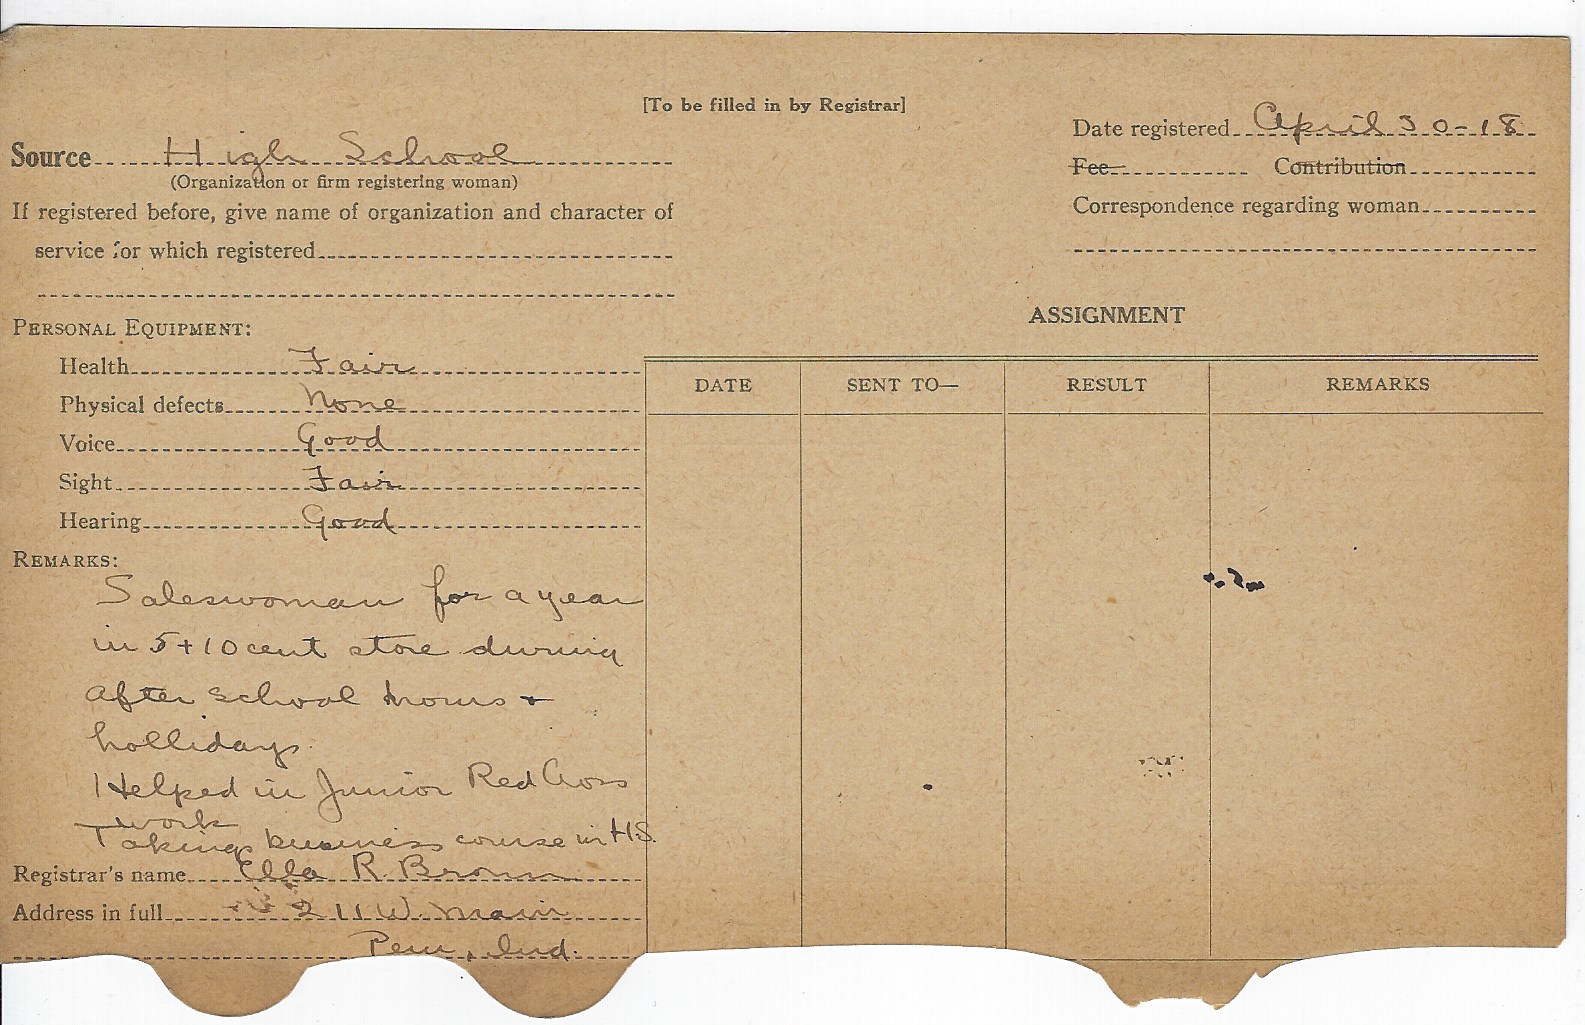 [To be filled in by Registrar]
Date registered April 30-18
Source High School
(Organization or firm registering woman)
Fee Contribution
If registered before, give name of organization and character of
Correspondence regarding woman
service for which registered
PERSONAL EQUIPMENT:
ASSIGNMENT
Health Fair
Physical defects None
Voice Good
Sight Fair
Hearing Good
DATE SENT TO— RESULT REMARKS
REMARKS:
Saleswoman for a year
in 5+10 cent store during
after school hours +
hollidays.
Helped in Junior Red Cross
work
Taking business course in H.S.
Registrar's name Ella R. Brown
Address in full 211 W. Main
Peru, Ind.